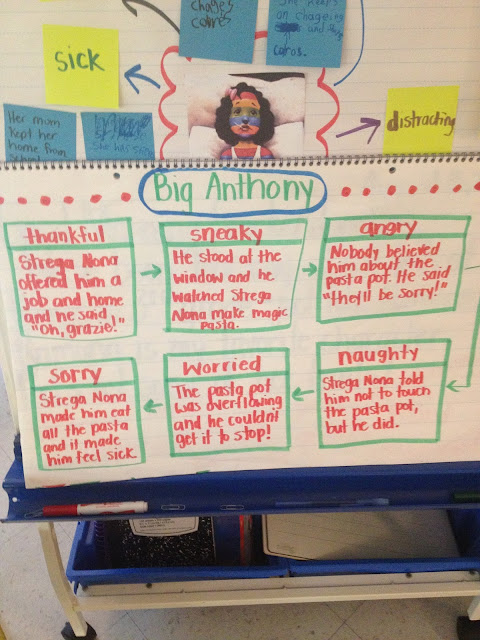 changes
colors
on changing
and
colors.
sick
distracting
Her mom
kept her
home from
Big Anthony
thankful
Strega Nona
offered him a
job and home
and he said,
"Oh, grazie!"
sneaky
He stood at the
window and he
watched Strega
Nona make magic
pasta.
angry
Nobody believed
him about the
pasta pot. He said
"they'll be sorry!"
naughty
Strega Nona told
him not to touch
the pasta pot,
but he did.
Worried
The pasta pot
was overflowing
and he couldn't
get it to stop!
sorry
Strega Nona
made him eat
all the pasta
and it made
him feel sick.